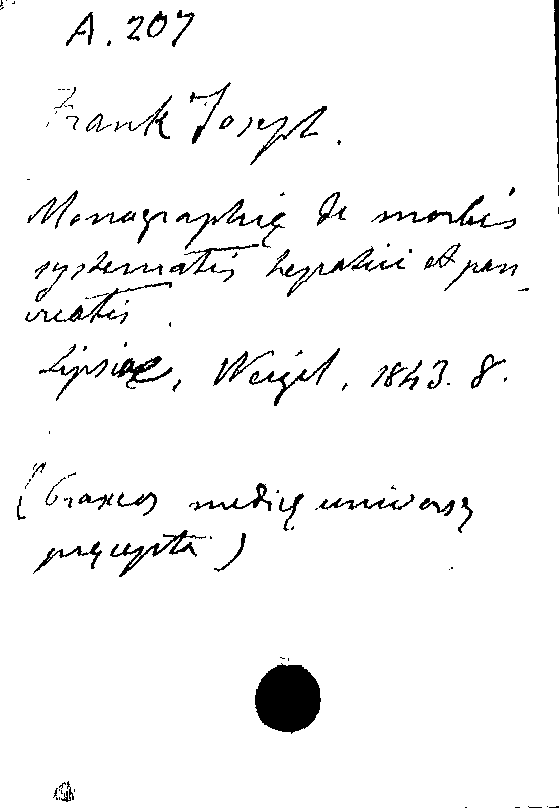 A. 207
Frank Joseph.
Monographię de morbis
systematis hepatici et pan_
creatis.
Lipsiae, Weigel, 1843. 8.
(Praxeos medicę universę
pręcepta)